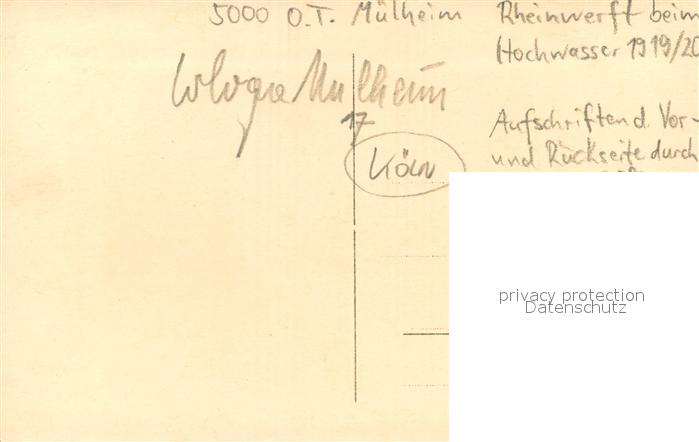 5000 O.T. Mülheim
Rheinwerft beim
Hochwasser 1919/20
Cologne Mülheim
17
Köln
Aufschriften d. Vor-
und Rückseite durch
privacy protection
Datenschutz